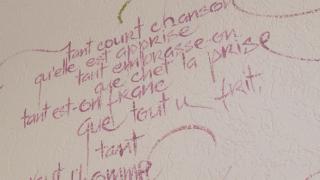 tant court chanson
qu'elle est apprise
tant embrasse-on
que chet la prise
tant est-on franc
que tout u frit,
tant
homme